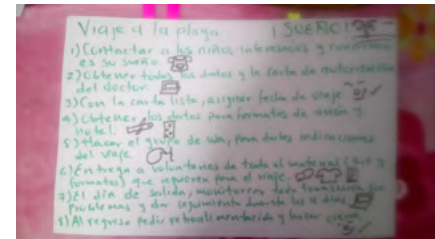 Viaje a la playa ¡SUEÑO!
1) Contactar a los niños interesados y confirmar
es su sueño.
2) Obtener todos los datos y la carta de autorización
del doctor.
3) Con la carta lista, asignar fecha de viaje
4) Obtener los datos para formatos de avión y
hotel.
5) Hacer el grupo de wa, para darles indicaciones
del viaje.
6) Entrega a voluntarios de todo el material (kit y
formatos) que requieren para el viaje.
7) El día de salida, monitorear todo transcurra sin
problemas y dar seguimiento durante los días
8) Al regreso pedir retroalimentación y hacer cierre.